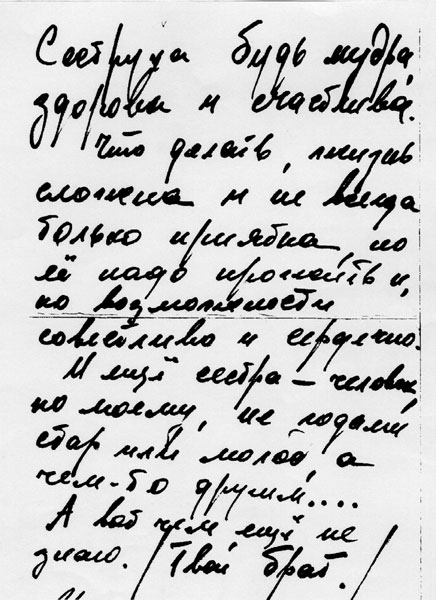 Сеструха будь мудра,
здорова и счастлива.
Что делать, жизнь
сложна и не всегда
только приятна, но
её надо прожить и,
по возможности
совестливо и сердечно.
И ещё сестра – человек,
по моему, не годами
стар или молод, а
чем-то другим....
А вот чем ещё не
знаю. Твой брат.